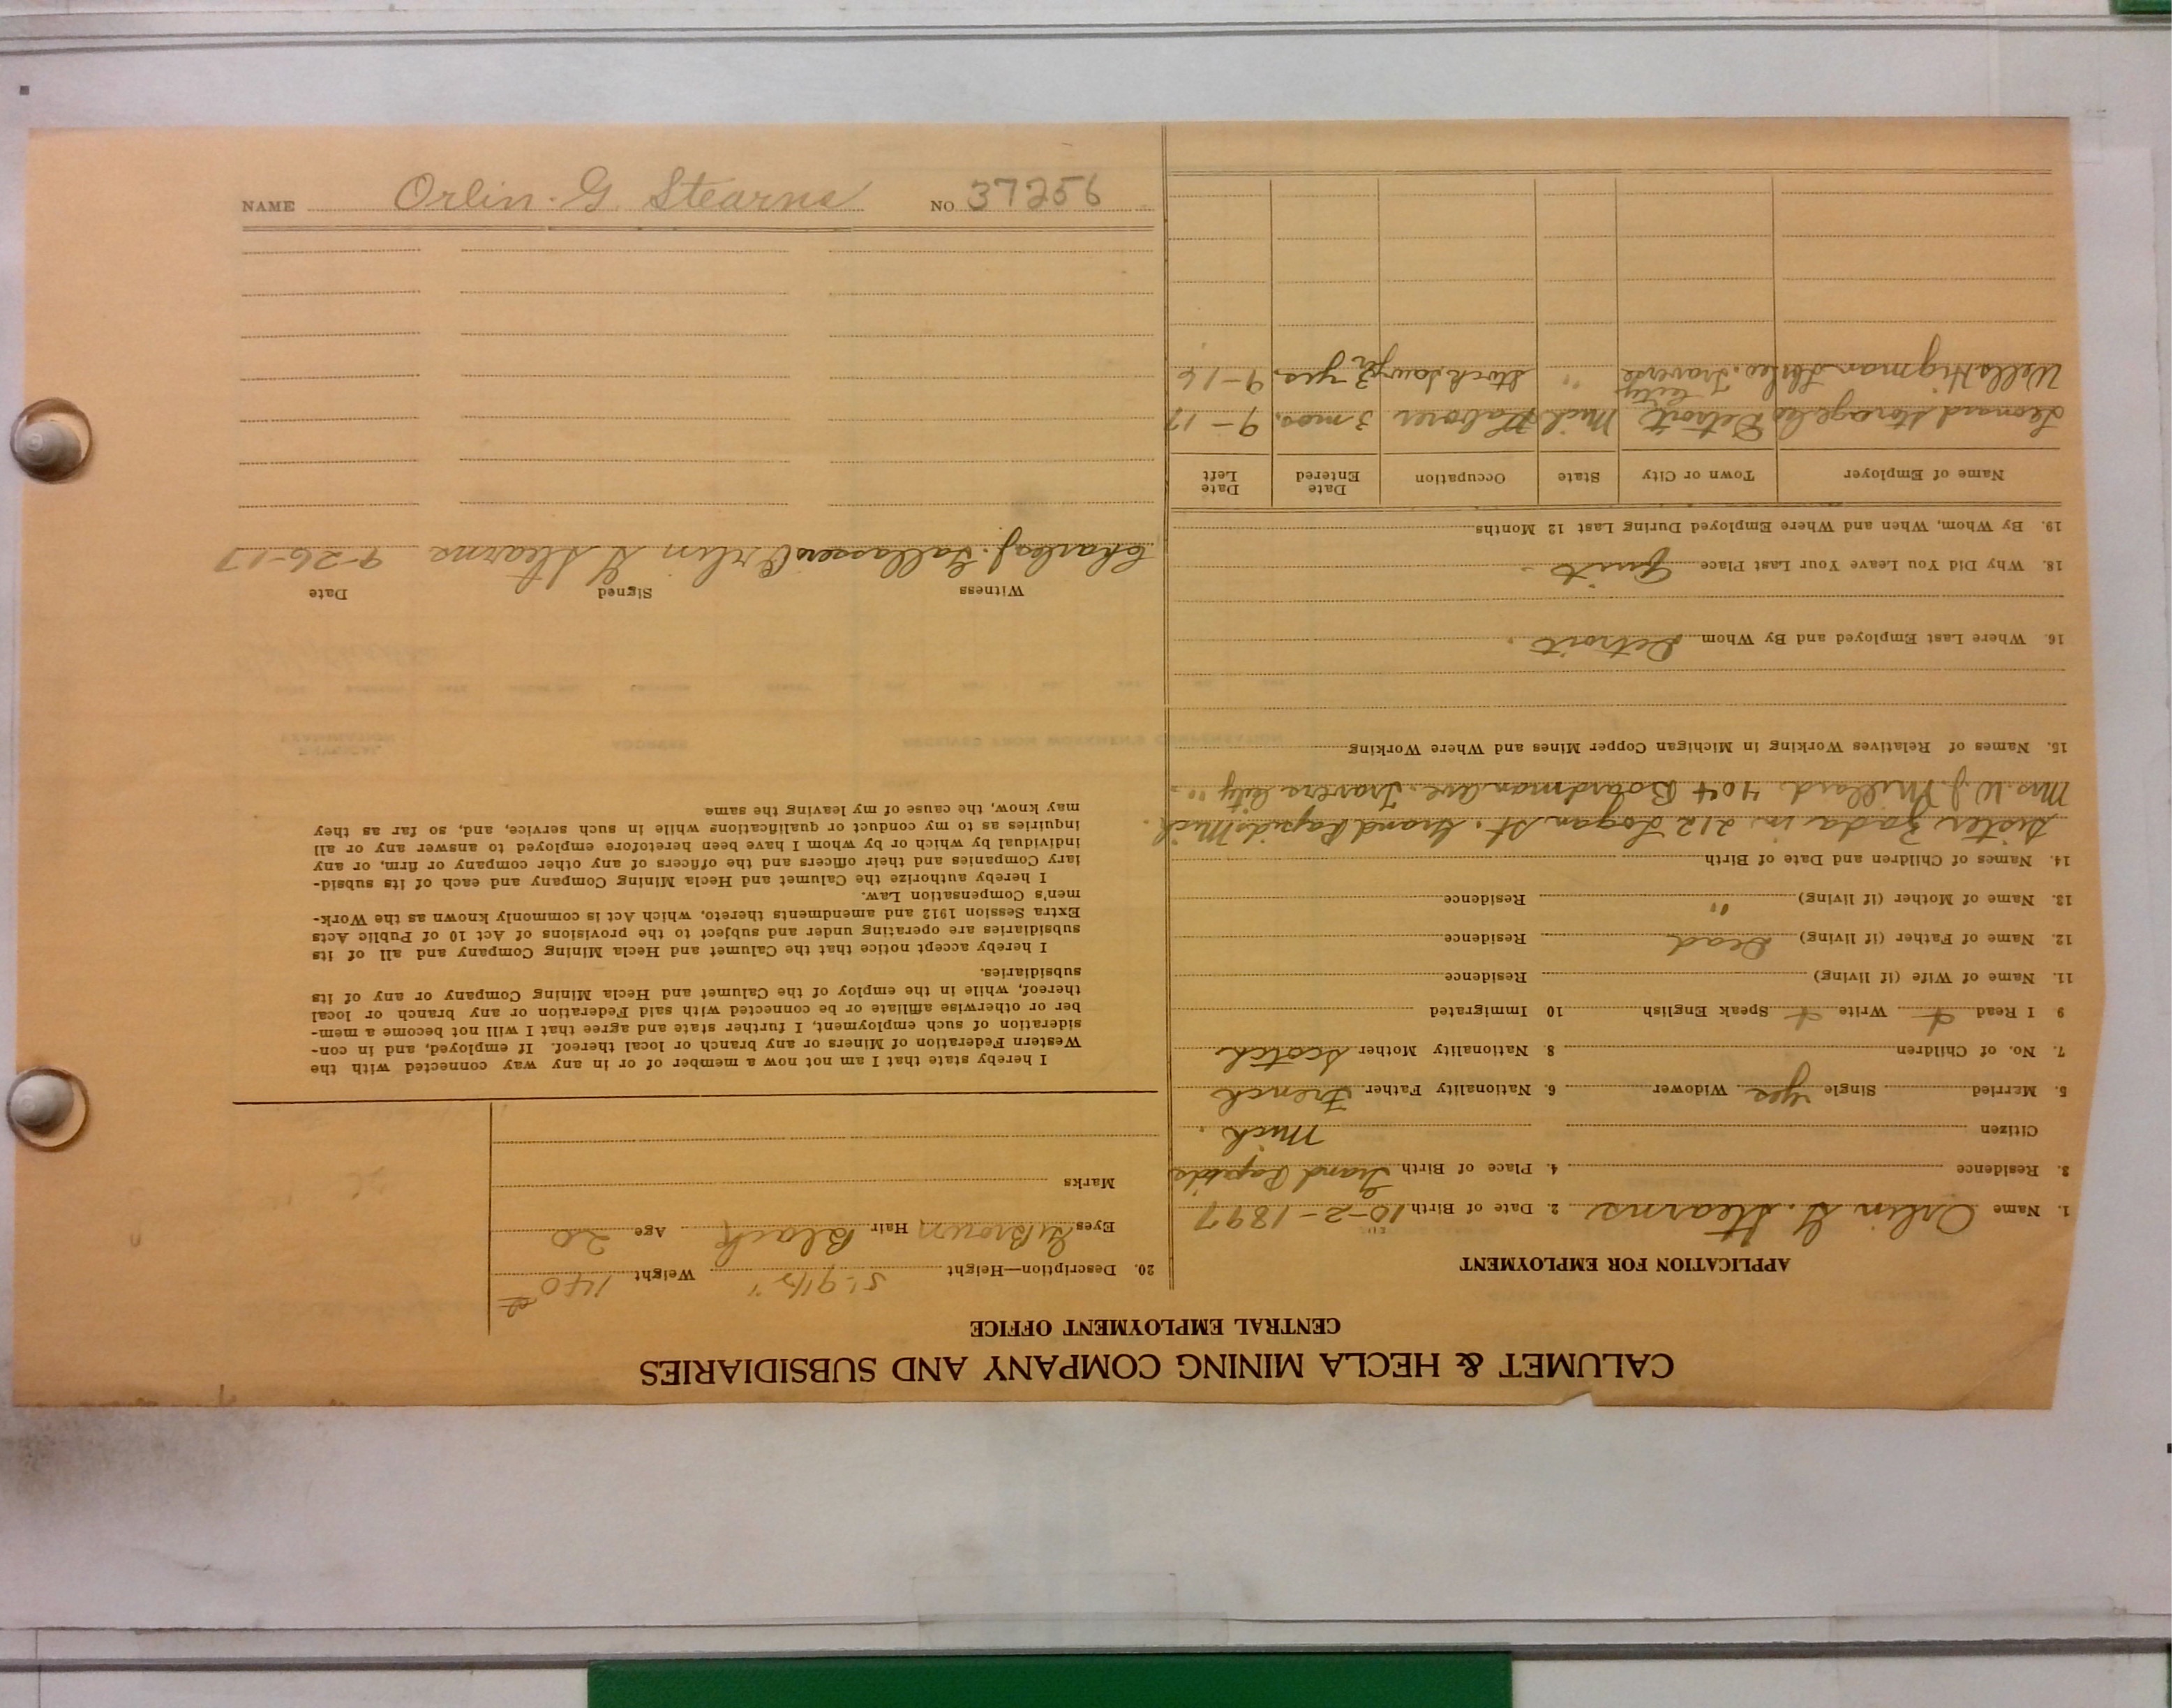 CALUMET & HECLA MINING COMPANY AND SUBSIDIARIES
CENTRAL EMPLOYMENT OFFICE
APPLICATION FOR EMPLOYMENT
1. Name Orlin G. Stearns 2. Date of Birth 10-2-1897
3. Residence 4. Place of Birth Grand Rapids
Citizen Mich.
5. Married Single yes Widower 6. Nationality Father French
7. No. of Children 8. Nationality Mother Scotch
9 I Read Write Speak English 10 Immigrated
11. Name of Wife (if living) Residence
12. Name of Father (if living) Dead Residence
13. Name of Mother (if living) " Residence
14. Names of Children and Date of Birth
Sister Zada in 212 Logan St. Grand Rapids Mich.
Mrs. W. J. Millard. 404 Boardman Ave. Travers City "
15. Names of Relatives Working in Michigan Copper Mines and Where Working
16. Where Last Employed and By Whom Detroit.
18. Why Did You Leave Your Last Place Quit
19. By Whom, When and Where Employed During Last 12 Months
Name of Employer Town or City State Occupation Date Entered Date Left
Leonard Storage Co Detroit Mich Laborer 3 mos. 9-17
Wells Higman Traverse City " Stock 3 yrs. 9-16
20. Description—Height 5-9 1/2" Weight 140#
Eyes Brown Hair Black Age 20
Marks
I hereby state that I am not now a member of or in any way connected with the
Western Federation of Miners or any branch or local thereof. If employed, and in con-
sideration of such employment, I further state and agree that I will not become a mem-
ber or otherwise affiliate or be connected with said Federation or any branch or local
thereof, while in the employ of the Calumet and Hecla Mining Company or any of its
subsidiaries.
I hereby accept notice that the Calumet and Hecla Mining Company and all of its
subsidiaries are operating under and subject to the provisions of Act 10 of Public Acts
Extra Session 1912 and amendments thereto, which Act is commonly known as the Work-
men's Compensation Law.
I hereby authorize the Calumet and Hecla Mining Company and each of its subsid-
iary Companies and their officers and the officers of any other company or firm, or any
individual by which or by whom I have been heretofore employed to answer any or all
inquiries as to my conduct or qualifications while in such service, and, so far as they
may know, the cause of my leaving the same
Witness Signed Date
Charles J. Orlin G Stearns 9-26-17
NAME Orlin. G. Stearns NO 37256